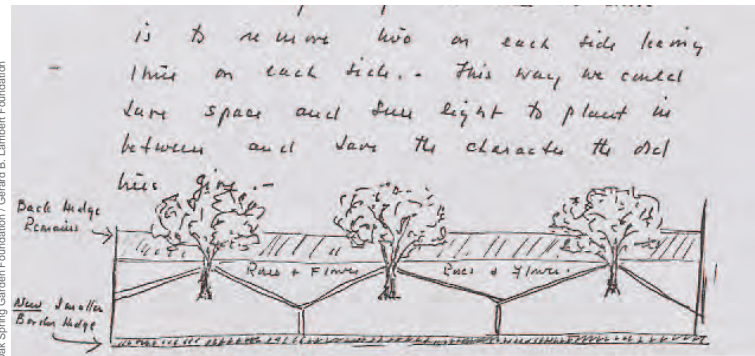 is to remove two on each side leaving
three on each side.. This way we could
have space and sun light to plant in
between and save the character the old
trees give.-
Back Hedge
Remains
Roses + Flowers
Roses + Flowers.
New Smaller
Border Hedge
Oak Spring Garden Foundation / Gerard B. Lambert Foundation